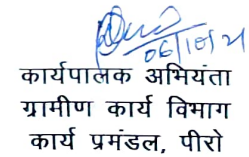 06/10/21
कार्यपालक अभियंता
ग्रामीण कार्य विभाग
कार्य प्रमंडल, पीरो